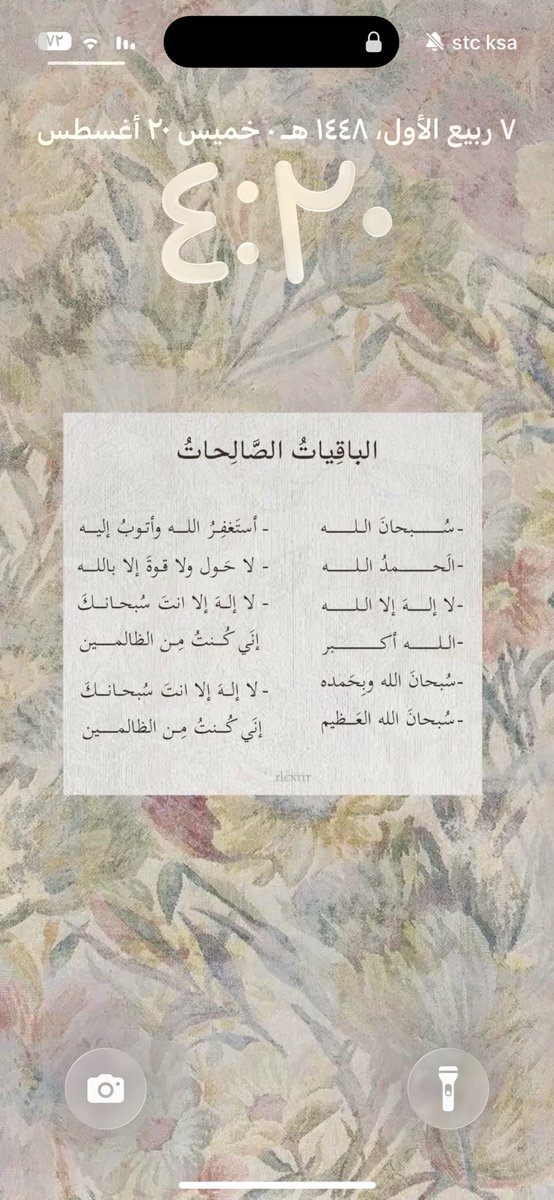 stc ksa
٧٢
٧ ربيع الأول، ١٤٤٨ هـ • خميس ٢٠ أغسطس
٤:٢٠
الباقِياتُ الصَّالِحاتُ
-سُبحانَ اللـه
-الَحمدُ اللـه
-لا إلـهَ إلا اللـه
-اللـه أكبر
-سُبحانَ الله وبِحَمده
-سُبحانَ الله العَظيم
- أستَغفِرُ اللـه وأتوبُ إليه
- لا حَول ولا قوةَ إلا باللـه
- لا إلـهَ إلا انتَ سُبحانـكَ
إنَي كُنتُ مِن الظالمـين
- لا إلـهَ إلا انتَ سُبحانـكَ
إنَي كُنتُ مِن الظالمـين